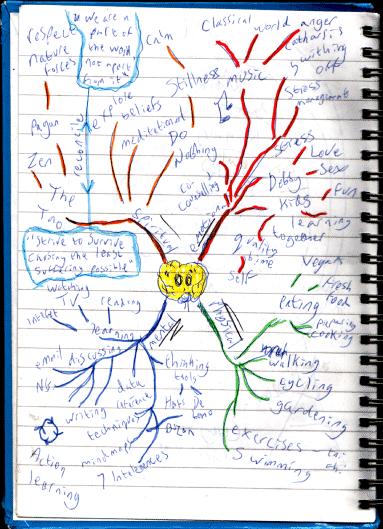 we are a
part of
the world
not apart
from it
respect
nature
forces
Calm
explore
beliefs
meditational
Do
Nothing
Stillness
Pagan
Zen
The
Tao
reconcile
spiritual
"Strive to Survive
causing the least
suffering possible"
Classical
world
anger
catharsis
music
switching
off
Stress
management
stress
Love
Sex
Fun
Debby
Kids
Co-
counselling
emotional
learning
together
quality
time
self
watching
TV
reading
internet
learning
mental
email
discussing
NGs
data
writing
techniques
mindmaps
thinking
tools
Hats De
Bono
Buzan
Action
learning
7 Intelligences
physical
Vegan
Fresh
food
eating
preparing
cooking
walking
cycling
gardening
exercises - tai
chi
Swimming